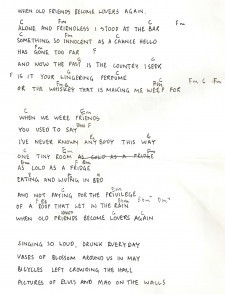 WHEN OLD FRIENDS BECOME LOVERS AGAIN.
C Fm C Fm
ALONE AND FRIENDLESS I STOOD AT THE BAR
C Fm C
SOMETHING SO INNOCENT AS A CHANCE HELLO
Fm F
HAS GONE TOO FAR
G C
AND NOW THE PAST IS THE COUNTRY I SEEK
F G C
IS IT YOUR LINGERING PERFUME
Fm C Fm
OR THE WHISKEY THAT IS MAKING ME WEEP FOR
C Em
WHEN WE WERE FRIENDS
F
YOU USED TO SAY
G C
I'VE NEVER KNOWN ANYBODY THIS WAY
C Em
ONE TINY ROOM AS COLD AS A FRIDGE
Em
AS COLD AS A FRIDGE
EATING AND LIVING IN BED
C Em
AND NOT PAYING FOR THE PRIVILEGE
OF A ROOF THAT LET IN THE RAIN
G C
WHEN OLD FRIENDS BECOME LOVERS AGAIN
SINGING SO LOUD, DRUNK EVERYDAY
VASES OF BLOSSOM AROUND US IN MAY
BICYCLES LEFT CROWDING THE HALL
PICTURES OF ELVIS AND MAO ON THE WALLS